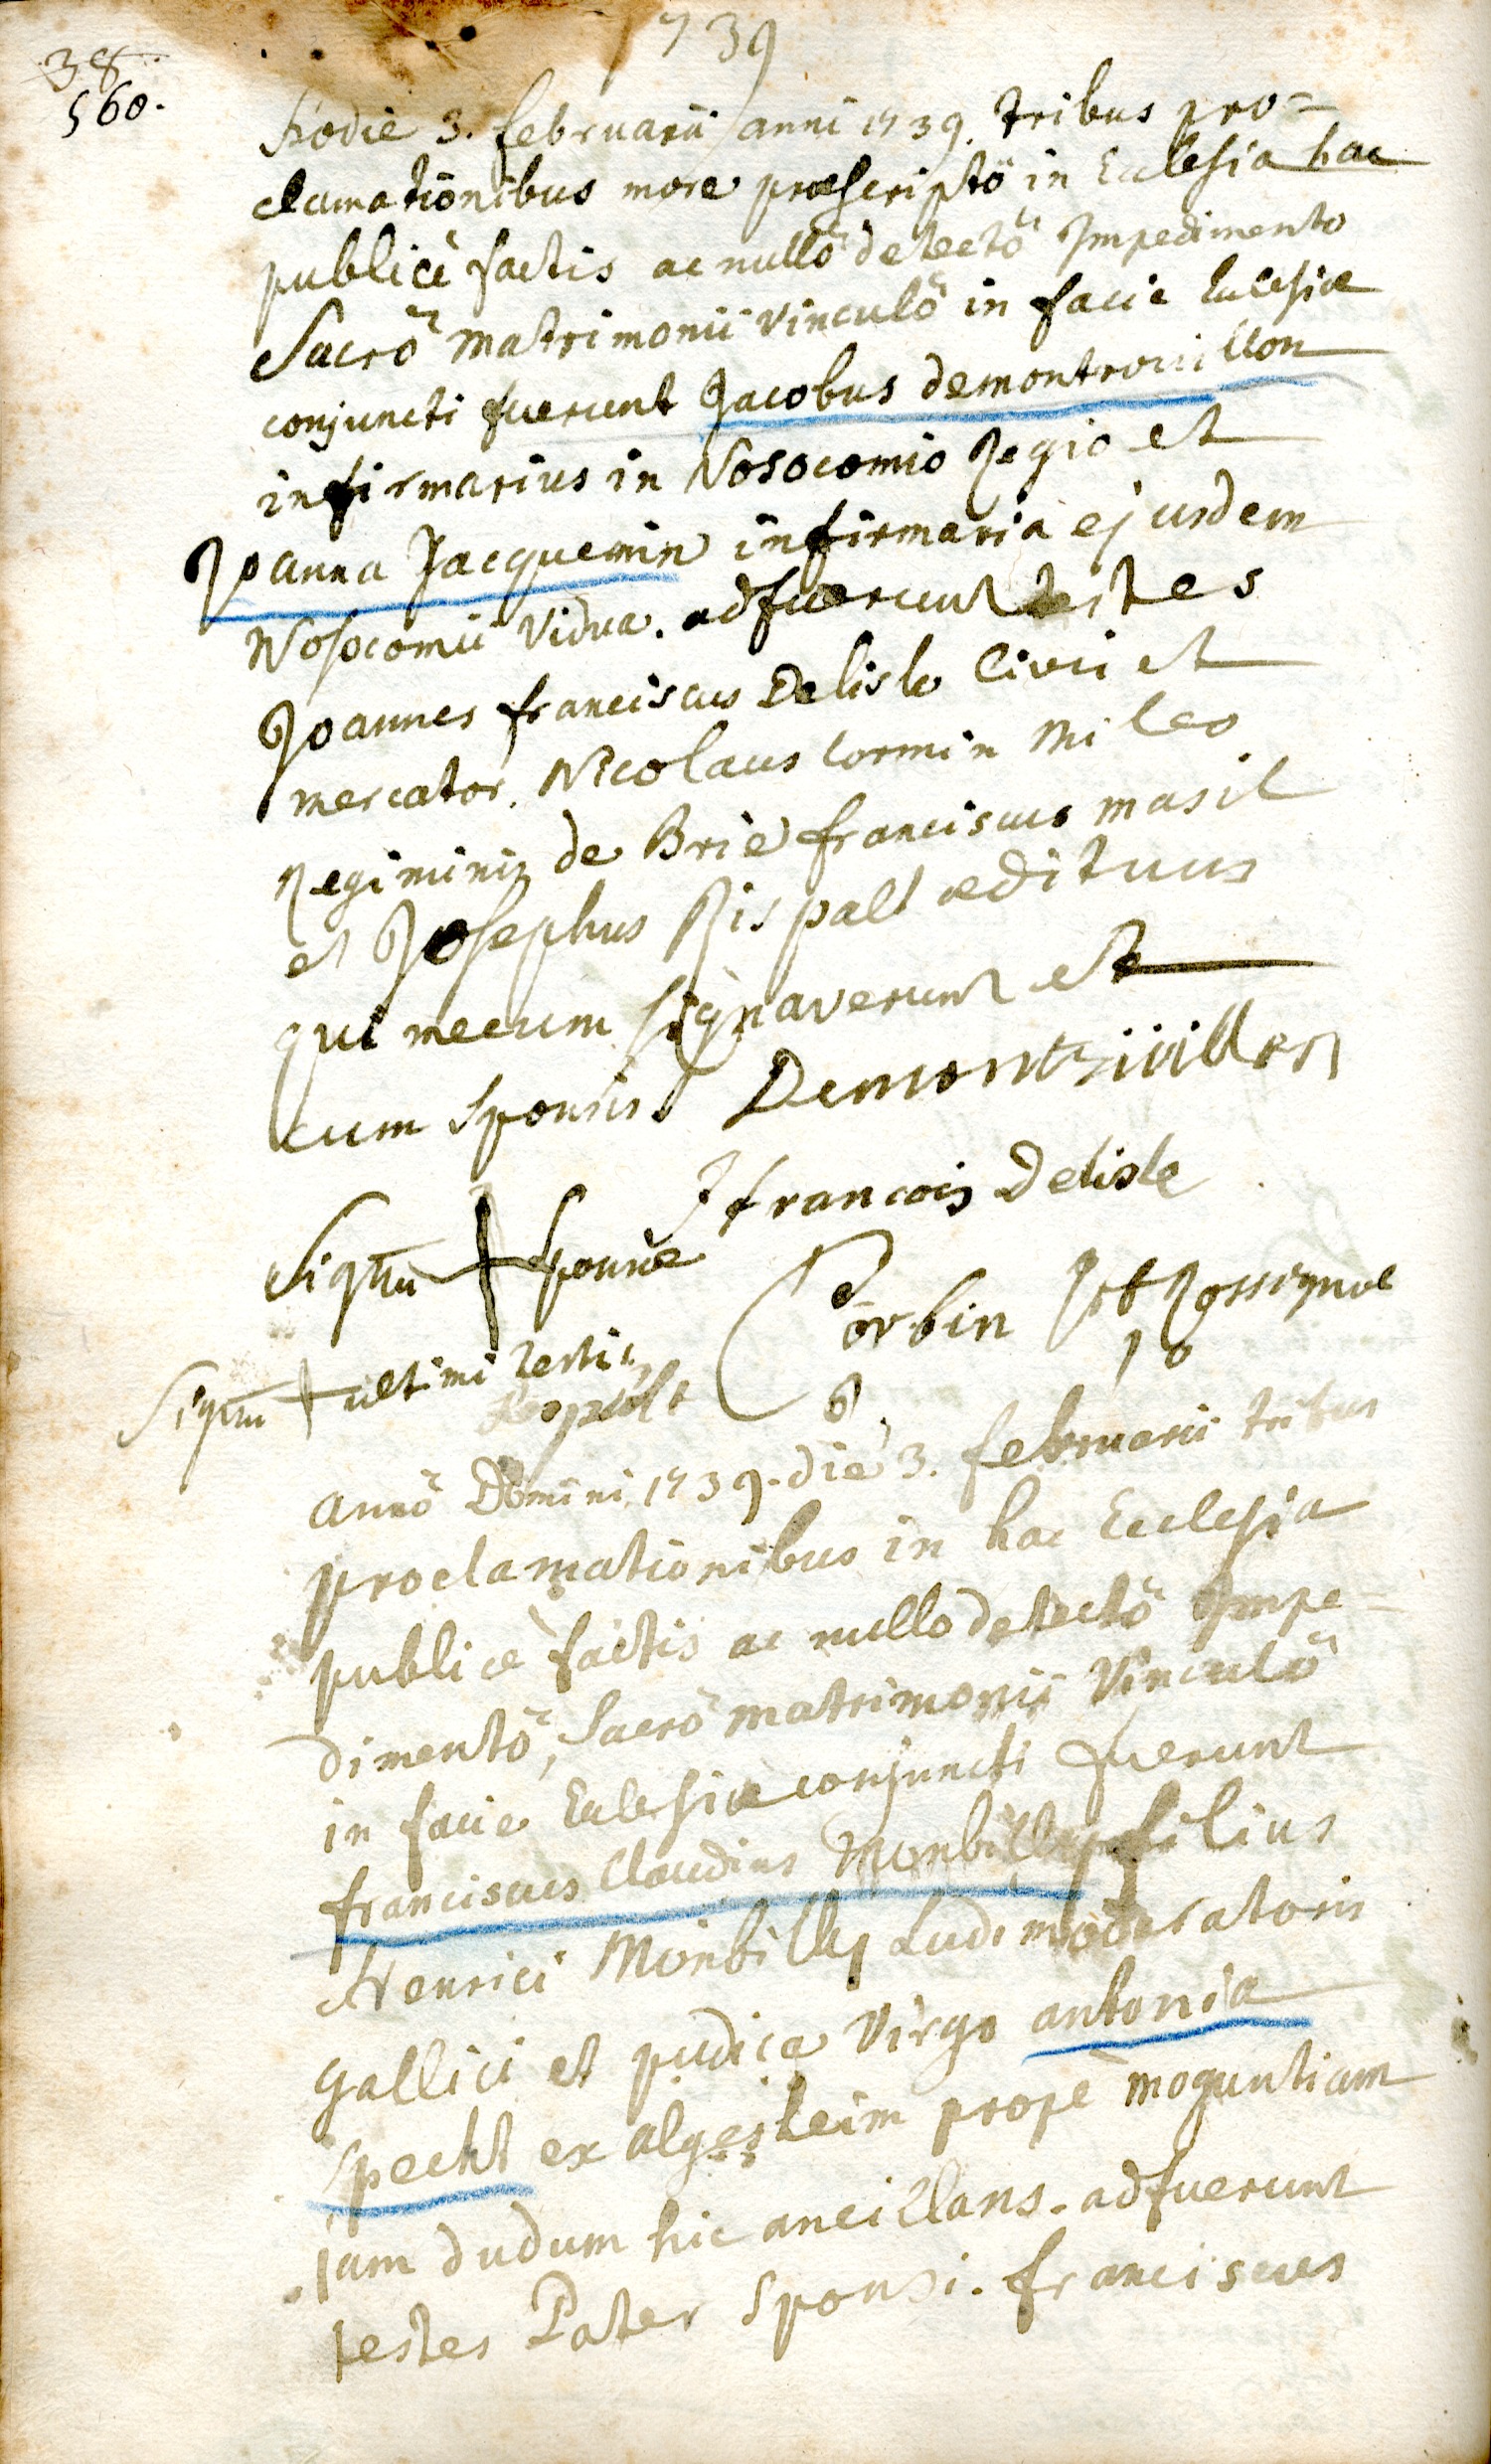 1739
38
560.
Hodie 3. februarii anni 1739. tribus pro=
clamationibus more præscriptô in Eclesia hac
publicè factis ac nullô detectô Impedimento
Sacrô matrimonii vinculô in facie Eclesiæ
conjuncti fuerunt Jacobus demontrouillon
infirmarius in Nosocomio Regio et
Joanna Jacquemin infirmaria ejusdem
Nosocomii vidua. adfuerunt testes
Joannes franciscus Delisle Civis et
mercator. Nicolaus Cormin miles
Regiminis de Brie franciscus masil
et Josephus Rispalt ædituus
qui mecum signaverunt et
cum sponsis Demontriüillon
J francois Delisle
Signu + sponse
Corbin
Signu + ultimi testis
annô Domini 1739. die 3. februarii tribus
proclamationibus in hac Ecclesia
publicè factis ac nullo detectô Impe=
dimentô, Sacrô matrimonii Vinculô
in facie Eclesiæ conjuncti fuerunt
franciscus Claudius Monbilly filius
Henrici Monbilly Ludimoderatoris
gallici et pudica virgo antonia
specht ex algesheim prope moguntiam
jam dudum hic ancillans. adfuerunt
testes Pater sponsi. franciscus